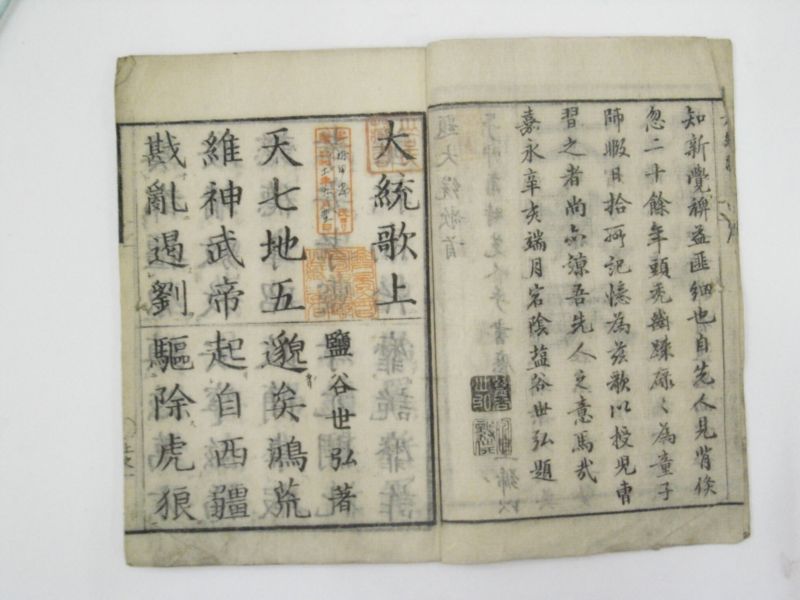 知新覺裨益匪細也自先人見背倏
忽二十餘年頭禿齒踈碌々為童子
師暇日拾所記憶為茲歌以授兒曹
習之者尚亦諒吾先人之意焉哉
嘉永辛亥端月宕陰塩谷世弘題
大統歌上
鹽谷世弘著
天七地五
邈矣鴻荒
維神武帝
起自西疆
戡亂遏劉
驅除虎狼